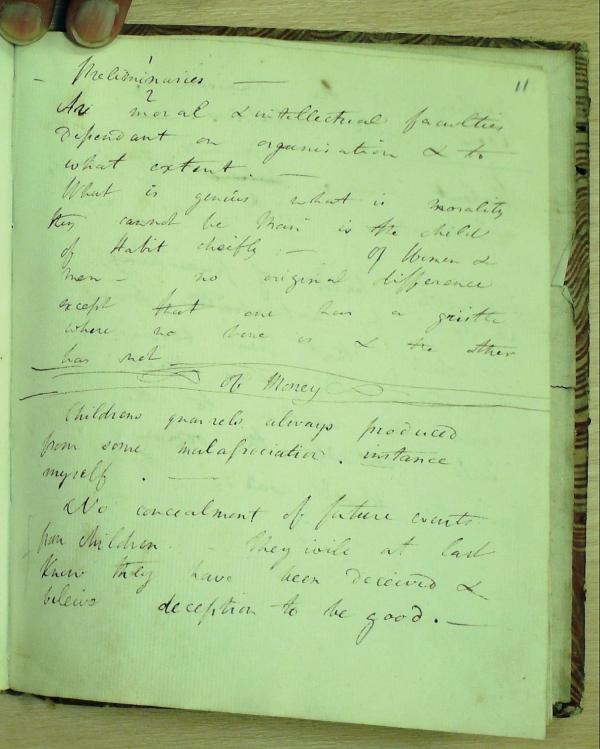 11
— Preliminaries —
Are moral & intellectual faculties
Dependant on organisation & to
what extent. —
What is genius what is morality
they cannot be Man is the child
of Habit cheifly — Of Women &
men — no original difference
except that one has a gristle
where no bone is & the other
has not
Of Money
Childrens quarrels always produced
from some malassociation. instance
myself. —
&No concealment of future events
from children. — They will at last
Know they have been deceived &
beleive deception to be good. —